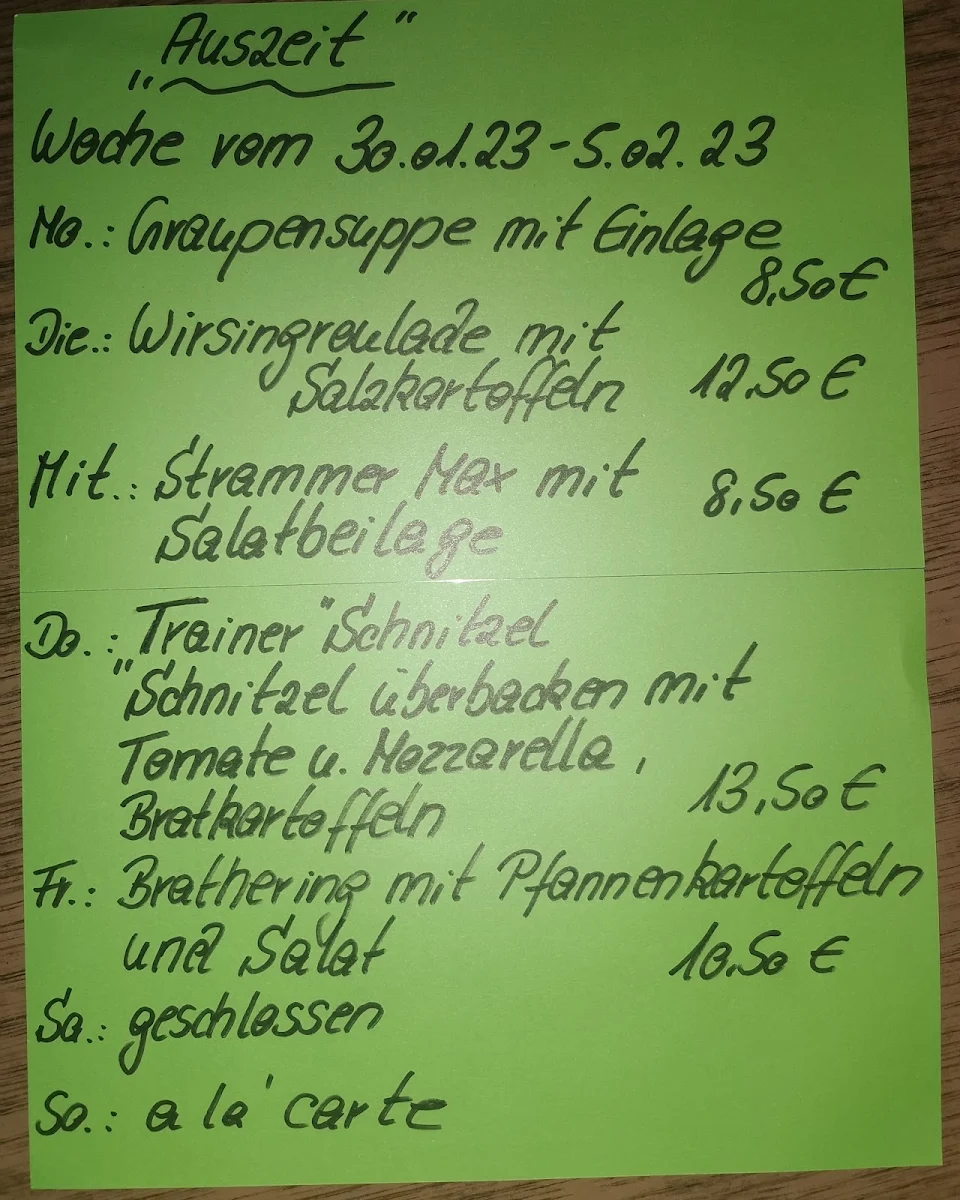 „Auszeit"
Woche vom 30.01.23-5.02.23
Mo.: Graupensuppe mit Einlage
8,50€
Die.: Wirsingroulade mit
Salzkartoffeln 12,50 €
Mit.: Strammer Max mit 8,50 €
Salatbeilage
Do.: Trainer "Schnitzel
"Schnitzel überbacken mit
Tomate u. Mozzarella,
Bratkartoffeln 13,50 €
Fr.: Brathering mit Pfannenkartoffeln
und Salat 10.50 €
Sa.: geschlossen
So.: a la' carte